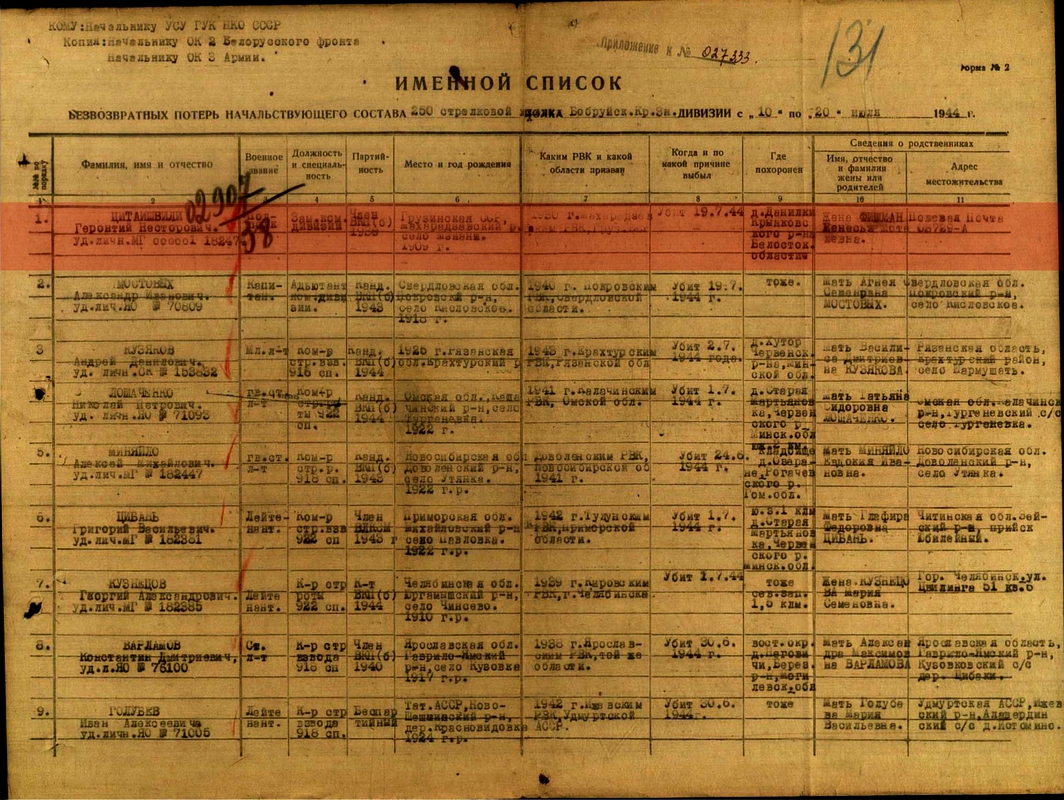 КОМУ:Начальнику УСУ ГУК НКО СССР
Копия:Начальнику ОК 2 Белорусского фронта
Начальнику ОК 3 Армии.
Приложение к № 027333.
131
Форма № 2
ИМЕННОЙ СПИСОК
БЕЗВОЗВРАТНЫХ ПОТЕРЬ НАЧАЛЬСТВУЮЩЕГО СОСТАВА 250 стрелковой Бобруйск.Кр.Зн.ДИВИЗИИ с „10" по „20" июля 1944 г.
№№ по порядку
Фамилия, имя и отчество
Военное звание
Должность и специальность
Партийность
Место и год рождения
Каким РВК и какой области призван
Когда и по какой причине выбыл
Где похоронен
Сведения о родственниках
Имя, отчество и фамилия жены или родителей
Адрес местожительства
6 7 8 9 10 11
02907
58
1. ЦИТАИШВИЛИ
Геронтий Несторович.
уд.личн.МГ 18247
Зам.ком. дивизии
Член ВКП(б) 1938
Грузинская ССР,
село
1909 г.
Убит 19.7.44
д.Данилки Крынковского р-на Белосток. области
Жена
Полевая почта 08729-А
2. МОСТОВЫХ
Александр Иванович.
уд.лич.ЯО № 70809
Капитан.
Адъютант ком.дивизии.
Канд. ВКП(б) 1943
Свердловская обл.
Покровский р-н,
село Кисловское.
1918 г.
1940 г. Покровским
РВК,Свердловской
области.
Убит 19.7.
1944 г.
тоже.
Мать Агнея
МОСТОВЫХ.
Свердловская обл.
Покровский р-н,
село Кисловское.
3 КУЗЯКОВ
Андрей Данилович.
уд. личн.СК № 153832
Мл.л-т
Ком-р стр.взв. 918 сп.
Канд. ВКП(б) 1944
1925 г.Рязанская
обл.Ерахтурский р
1943 г.Ерахтурским
РВК,Рязанской обл
Убит 2.7.
1944 года.
д.Хутор Червенск. р-на,Минской обл.
Мать Василиса Дмитриевна КУЗЯКОВА.
Рязанская область,
Ерахтурский район,
село Нармушать.
ЛОШАЧЕНКО
Николай Петрович.
уд.личн.ЯО № 71093
гв.ст. л-т
Ком-р 922 сп.
Канд. ВКП(б) 1944
Омская обл.,
1922 г.
1941 г.Калачинским
РВК, Омской обл.
Убит 1.7.
1944 г.
д.Старая Мартьяновка,Червенского р Минск.обл
Мать Татьяна
Сидоровна
ЛОШАЧЕНКО.
Омская обл.Калачинск
р-н,Тургеневский с/с
село Тургеневка.
5. МИНЯЙЛО
Алексей Михайлович.
уд.личн.МГ № 182447
гв.ст. л-т
Ком-р стр.р. 918 сп.
Канд. ВКП(б) 1943
Новосибирская об
Доволенский р-н,
село Утянка.
1922 г.р.
Доволенским РВК,
Новосибирской об
1941 г.
Убит 24.6.
1944 г.
кладбище Рогачевского р. Гом.обл.
Мать МИНЯЙЛО
Евдокия Ивановна.
Новосибирская обл.
Доволенский р-н,
село Утянка.
6. ЦИБАНЬ
Григорий Васильевич.
уд.личн.МГ № 182381
Лейтенант.
Ком-р стр.взв 922 сп
Член ВЛКСМ 1943 г
Приморская обл.
Михайловский р-н
село Павловка.
1922 г.р.
1942 г.
РВК,Приморской
области.
Убит 1.7.
1944 г.
ю.в.1 клм д.Старая Мартьяновка,Червенского р. Минск.обл.
Мать Глафира
Федоровна
ЦИБАНЬ.
Читинская обл.Зейский р-н, прийск
Юбилейный.
7. КУЗНЕЦОВ
Георгий Александрович.
уд.личн.МГ № 182385
Лейтенант.
К-р стр роты 922 сп.
К-т ВКП(б) 1944
Челябинская обл.
Юргамышский р-н,
село Чинеево.
1910 г.р.
1939 г.Кировским
РВК,г.Челябинска
Убит 1.7.44
тоже сев.зап. 1,5 клм.
Жена КУЗНЕЦОВА Мария
Семеновна.
Гор. Челябинск,ул.
Цвилинга 51 кв.6
8. ВАРЛАМОВ
Константин Дмитриевич,
уд.л.ЯО № 75100
Ст. л-т
К-р стр взвода 918 сп
Член ВКП(б) 1940
Ярославская обл.
Гаврило-Ямский
р-н,село Кузовка
1917 г.р.
1938 г.Ярославским РВК,той же
области.
Убит 30.6.
1944 г.
вост.окр Берез. р-н,Могилевск.обл
Мать Александра Максимовна ВАРЛАМОВА
Ярославская область,
Гаврило-Ямский р-н,
Кузовковский с/с
дер. Шибаки.
9. ГОЛУБЕВ
Иван Алексеевич
уд.личн.ЯО № 71005
Лейтенант.
К-р стр взвода 918 сп.
Беспартийный
Тат.АССР,Ново-
Шешминский р-н,
дер.Красновидовка
1924 г.р.
1942 г.Ижевским
РВК,Удмуртской
АССР.
Убит 30.6.
1944г.
тоже
Мать Голубева Мария
Васильевна.
Удмуртская АССР,Ижевский р-н,
ский с/с д.Истомино.